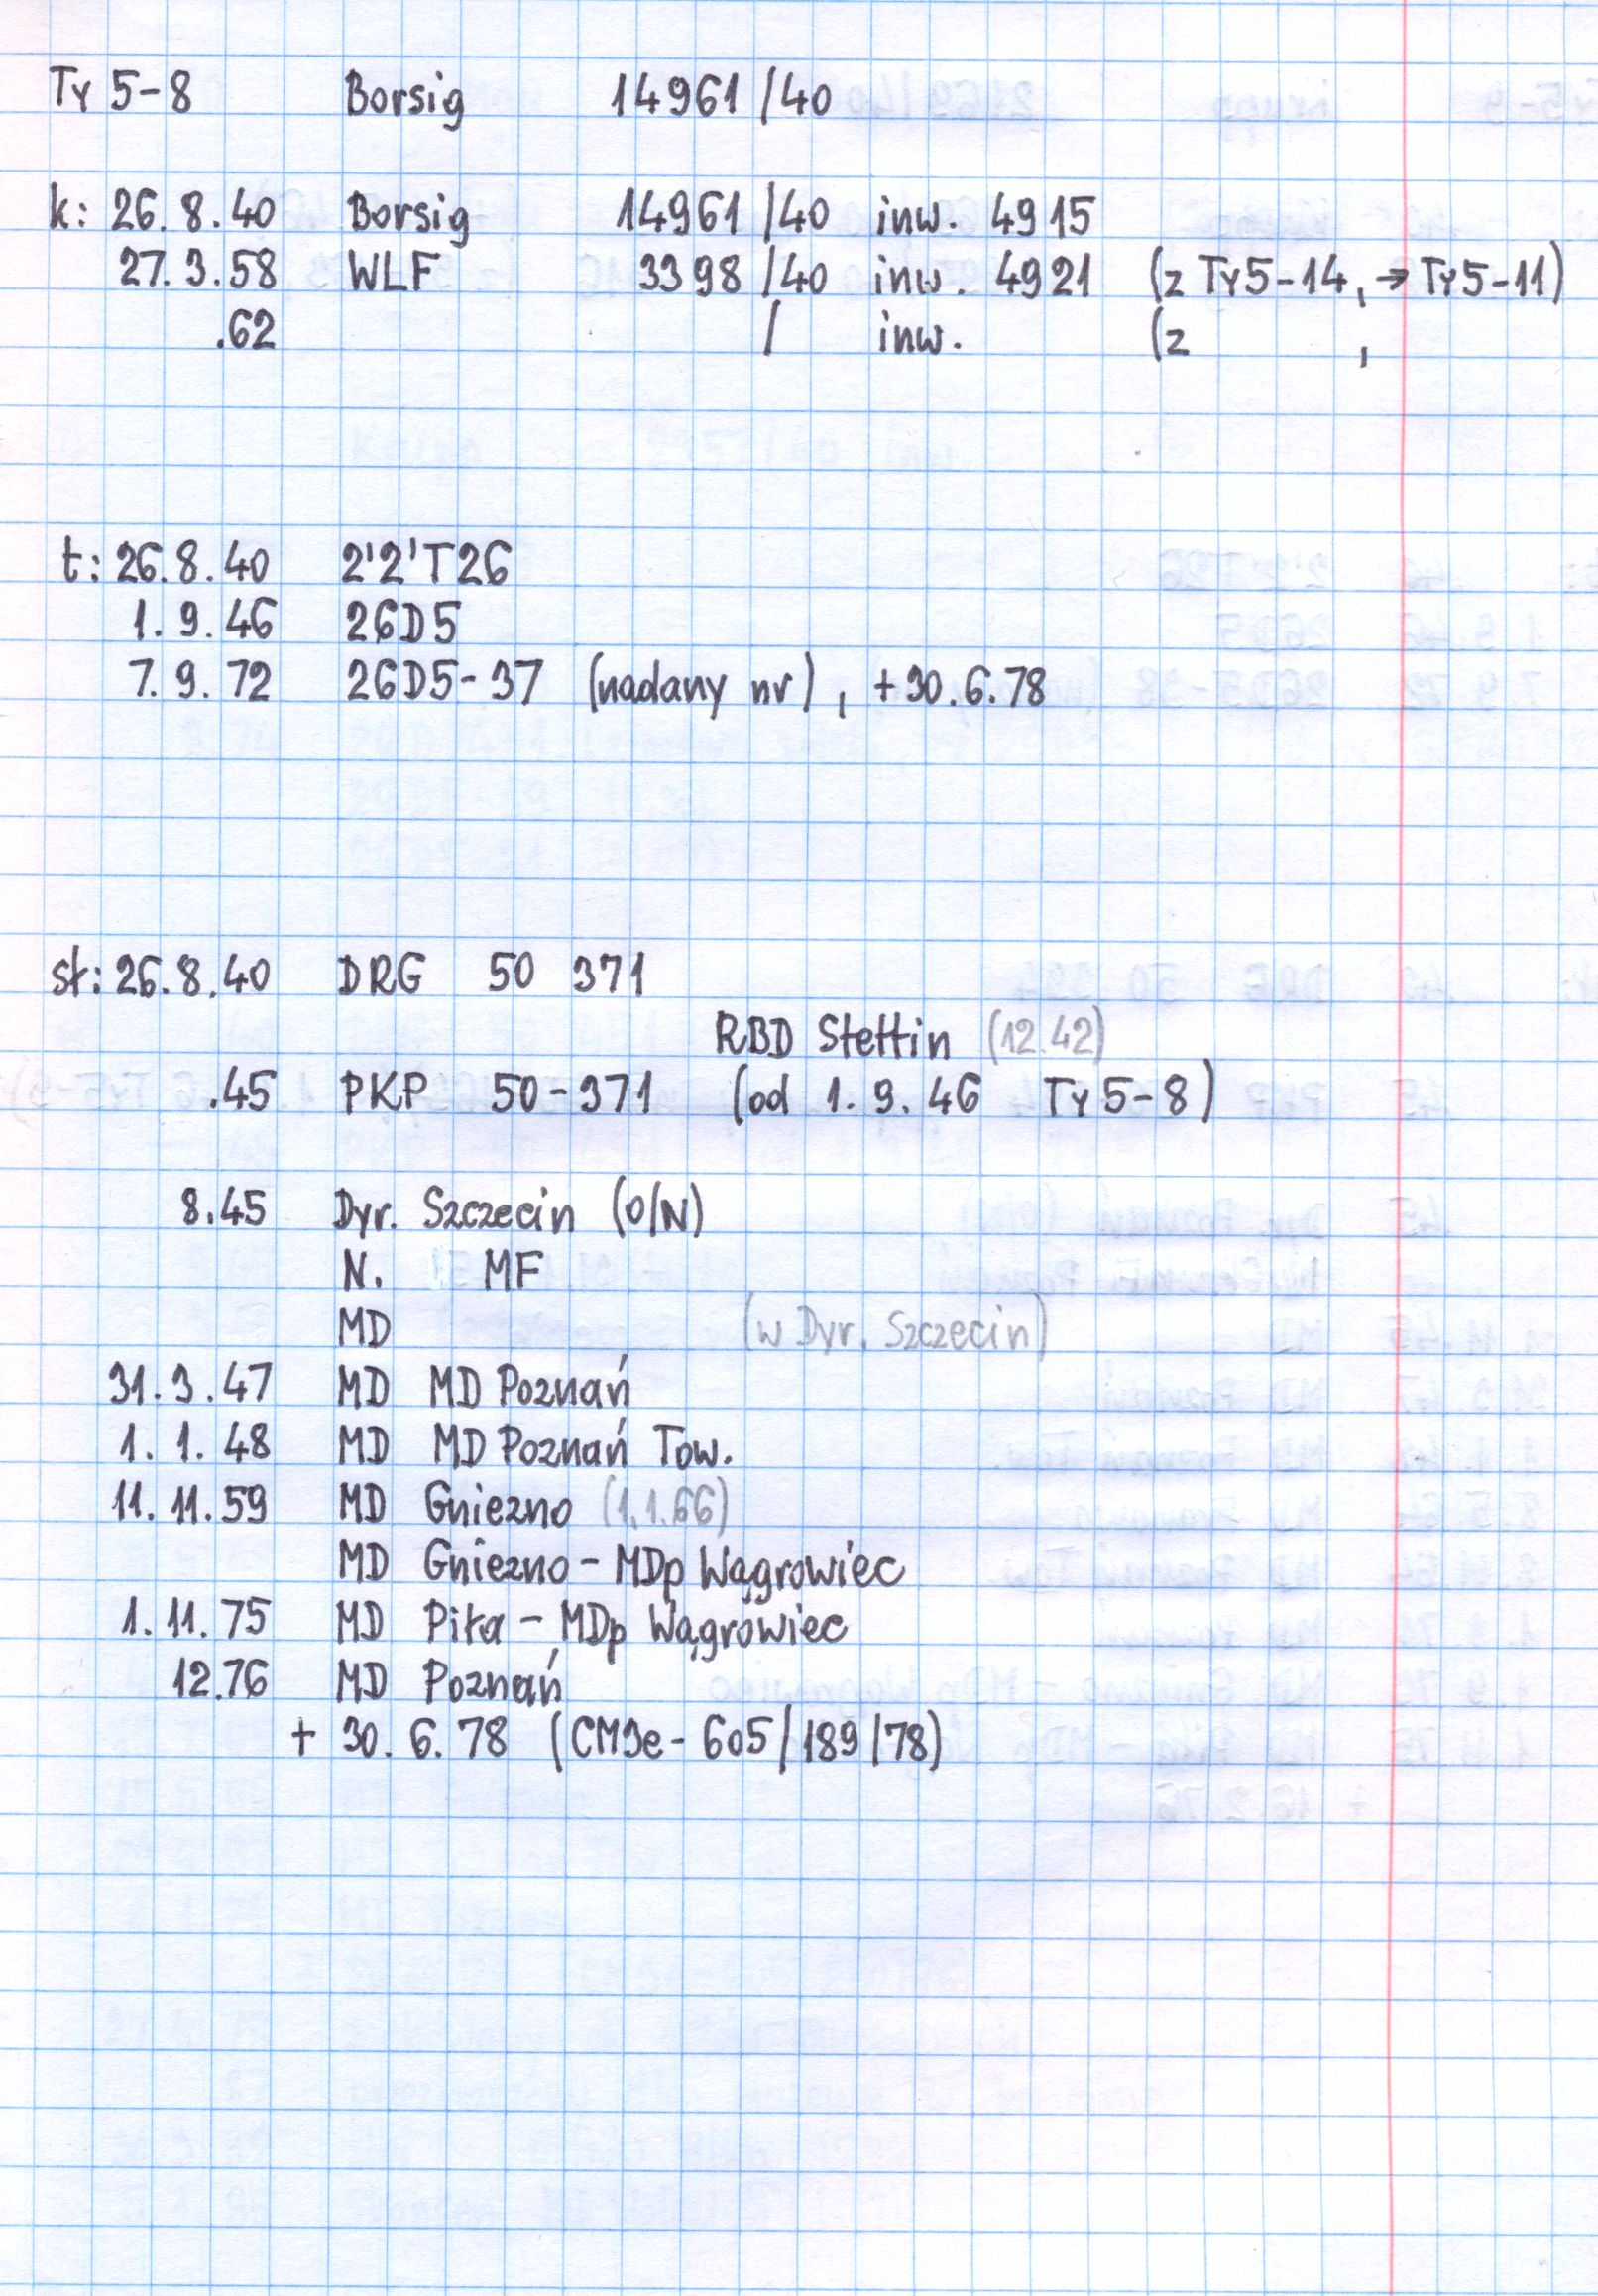 Ty 5-8 Borsig 14961/40
k: 26.8.40 Borsig 14961/40 inw. 4915
27.3.58 WLF 3398/40 inw. 4921 (z Ty5-14, → Ty5-11)
.62 / inw. (z ,
t: 26.8.40 2'2'T26
1.9.46 26D5
7.9.72 26D5-37 (nadany nr), +30.6.78
st: 26.8.40 DRG 50 371
RBD Stettin (12.42)
.45 PKP 50-371 (od 1.9.46 Ty5-8)
8.45 Dyr. Szczecin (O/N)
N. MF
MD (w Dyr. Szczecin)
31.3.47 MD MD Poznań
1.1.48 MD MD Poznań Tow.
11.11.59 MD Gniezno (1.1.66)
MD Gniezno - MDp Wągrowiec
1.11.75 MD Piła - MDp Wągrowiec
12.76 MD Poznań
+ 30.6.78 (CM3e-605/189/78)